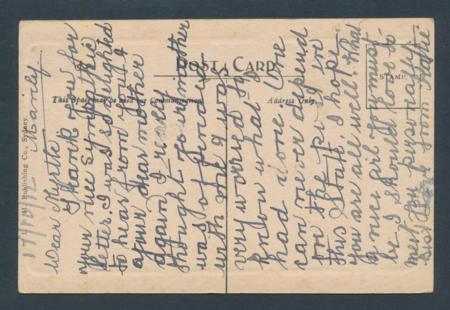 POST CARD
This Space may be used for Communication.
Address Only.
STAMP.
Publishing Co., Sydney.
17/10/12
Manly
Dear Myrtle
Thank you for
your nice sympathetic
letter. I was so delighted
to hear from you &
your dear mother
again. I really
thought your mother
was offended
with me I was
very worried to
know what I
had done. One
can never depend
on the p.c's in
this State. I hope
you are all well. What
a nice girl you must
be I should love to
meet you personally
from